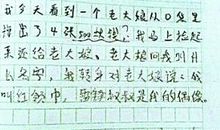 我今天看到一个老大娘从口袋里
掉出了4张500块钱?我马上捡起
来还给老大娘、老大娘问我叫什
么名字,我转身对老大娘说:我
叫红领巾,雷锋叔叔是我的偶像。